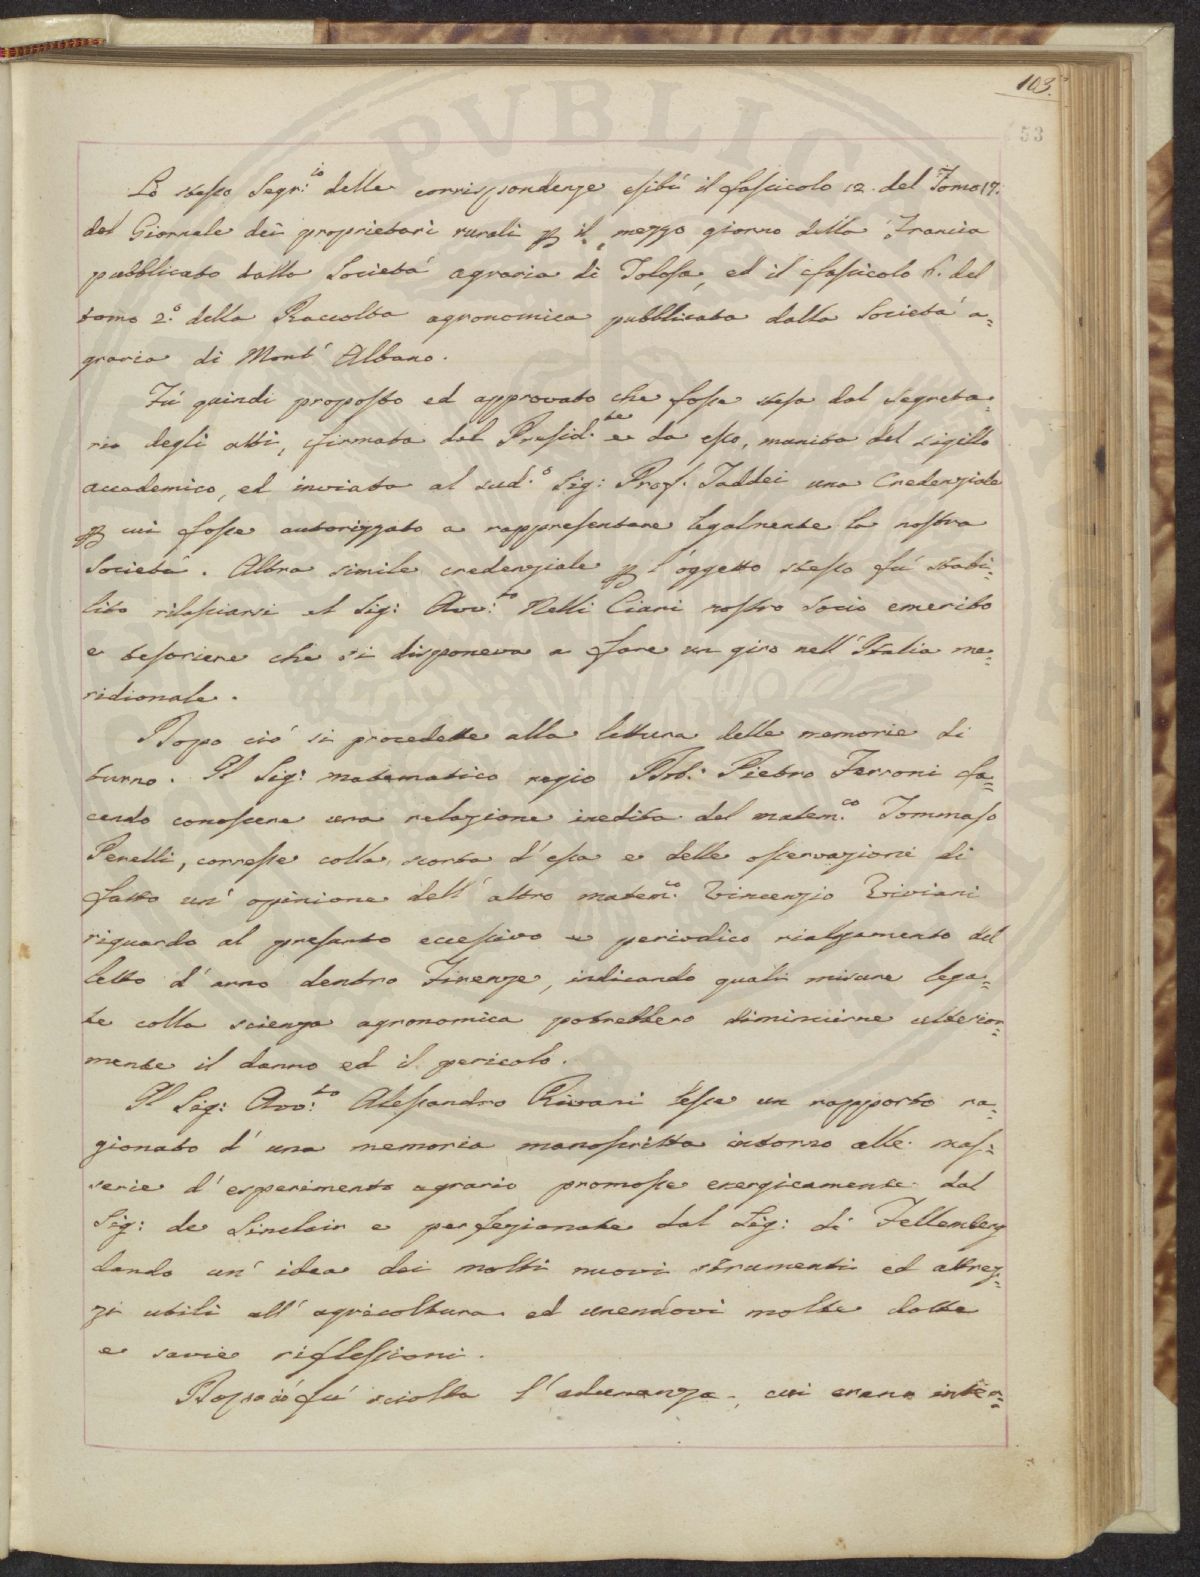 103.
53
Lo stesso Segr:io delle corrispondenze esibì il fascicolo 12 del Tomo 17.
del Giornale dei proprietari rurali p il mezzo giorno della Francia
pubblicato dalla Società agraria di Tolosa, ed il fascicolo 6. del
tomo 2.o della Raccolta agronomica pubblicata dalla Società a=
graria di Mont' Albano.
Fù quindi proposto ed approvato che fosse stesa dal Segreta=
rio degli atti, firmata dal Presid.te e da esso, munita del sigillo
accademico, ed inviata al sud.o Sig: Prof. Taddei una Credenziale
p cui fosse autorizzato a rappresentare legalmente la nostra
Società. Altra simile credenziale p l'oggetto stesso fù stabi=
lito rilasciarsi al Sig: Avv:to Nelli Ciani nostro Socio emerito
e tesoriere che si disponeva a fare un giro nell'Italia me=
ridionale.
Dopo ciò si procedette alla lettura delle memorie di
turno. Il Sig: matematico regio Pietro Ferroni fa=
cendo conoscere una relazione inedita del matem:co Tommaso
Perelli, corresse colla scorta d'essa e delle osservazioni di
fatto un' opinione dell' altro matem:co Vincenzio Viviani
riguardo al presunto eccessivo e periodico rialzamento del
letto d'arno dentro Firenze, indicando quali misure lega=
te colla scienza agronomica potrebbero diminuirne ulterior=
mente il danno ed il pericolo.
Il Sig: Avv:to Alessandro Rivani lesse un rapporto ra=
gionato d' una memoria manoscritta intorno alle mas=
serie d'esperimento agrario promosse energicamente dal
Sig: de Sinclair e perfezionate dal Sig: di Fellenberg
dando un' idea dei molti nuovi strumenti ed attrez=
zi utili all' agricoltura ed unendovi molte dotte
e savie riflessioni.
Dopo ciò fù sciolta l'adunanza, cui erano inter=